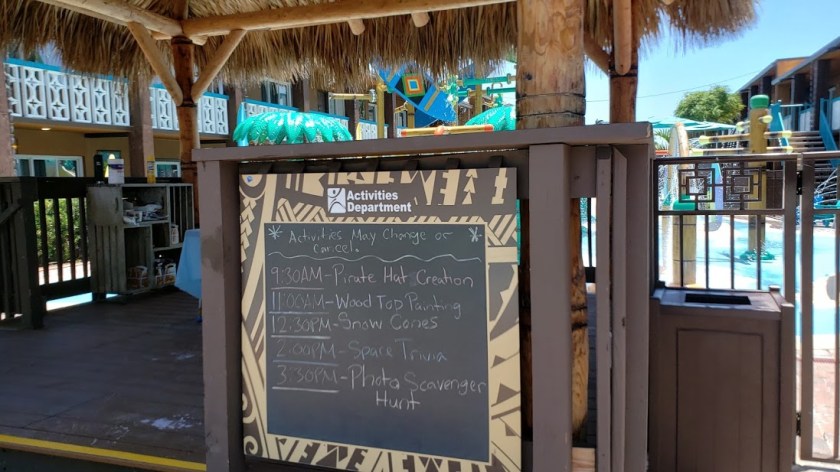 Activities
Department
* Activities May Change or *
Cancel.
9:30AM-Pirate Hat Creation
11:00AM-Wood Top Painting
12:30PM-Snow Cones
2:00PM-Space Trivia
3:30PM-Photo Scavenger
Hunt